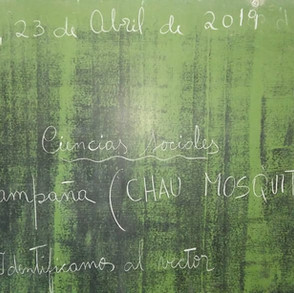 , 23 de Abril de 2019
Ciencias Sociales
ampaña (CHAU MOSQUIT
Identificamos al vector